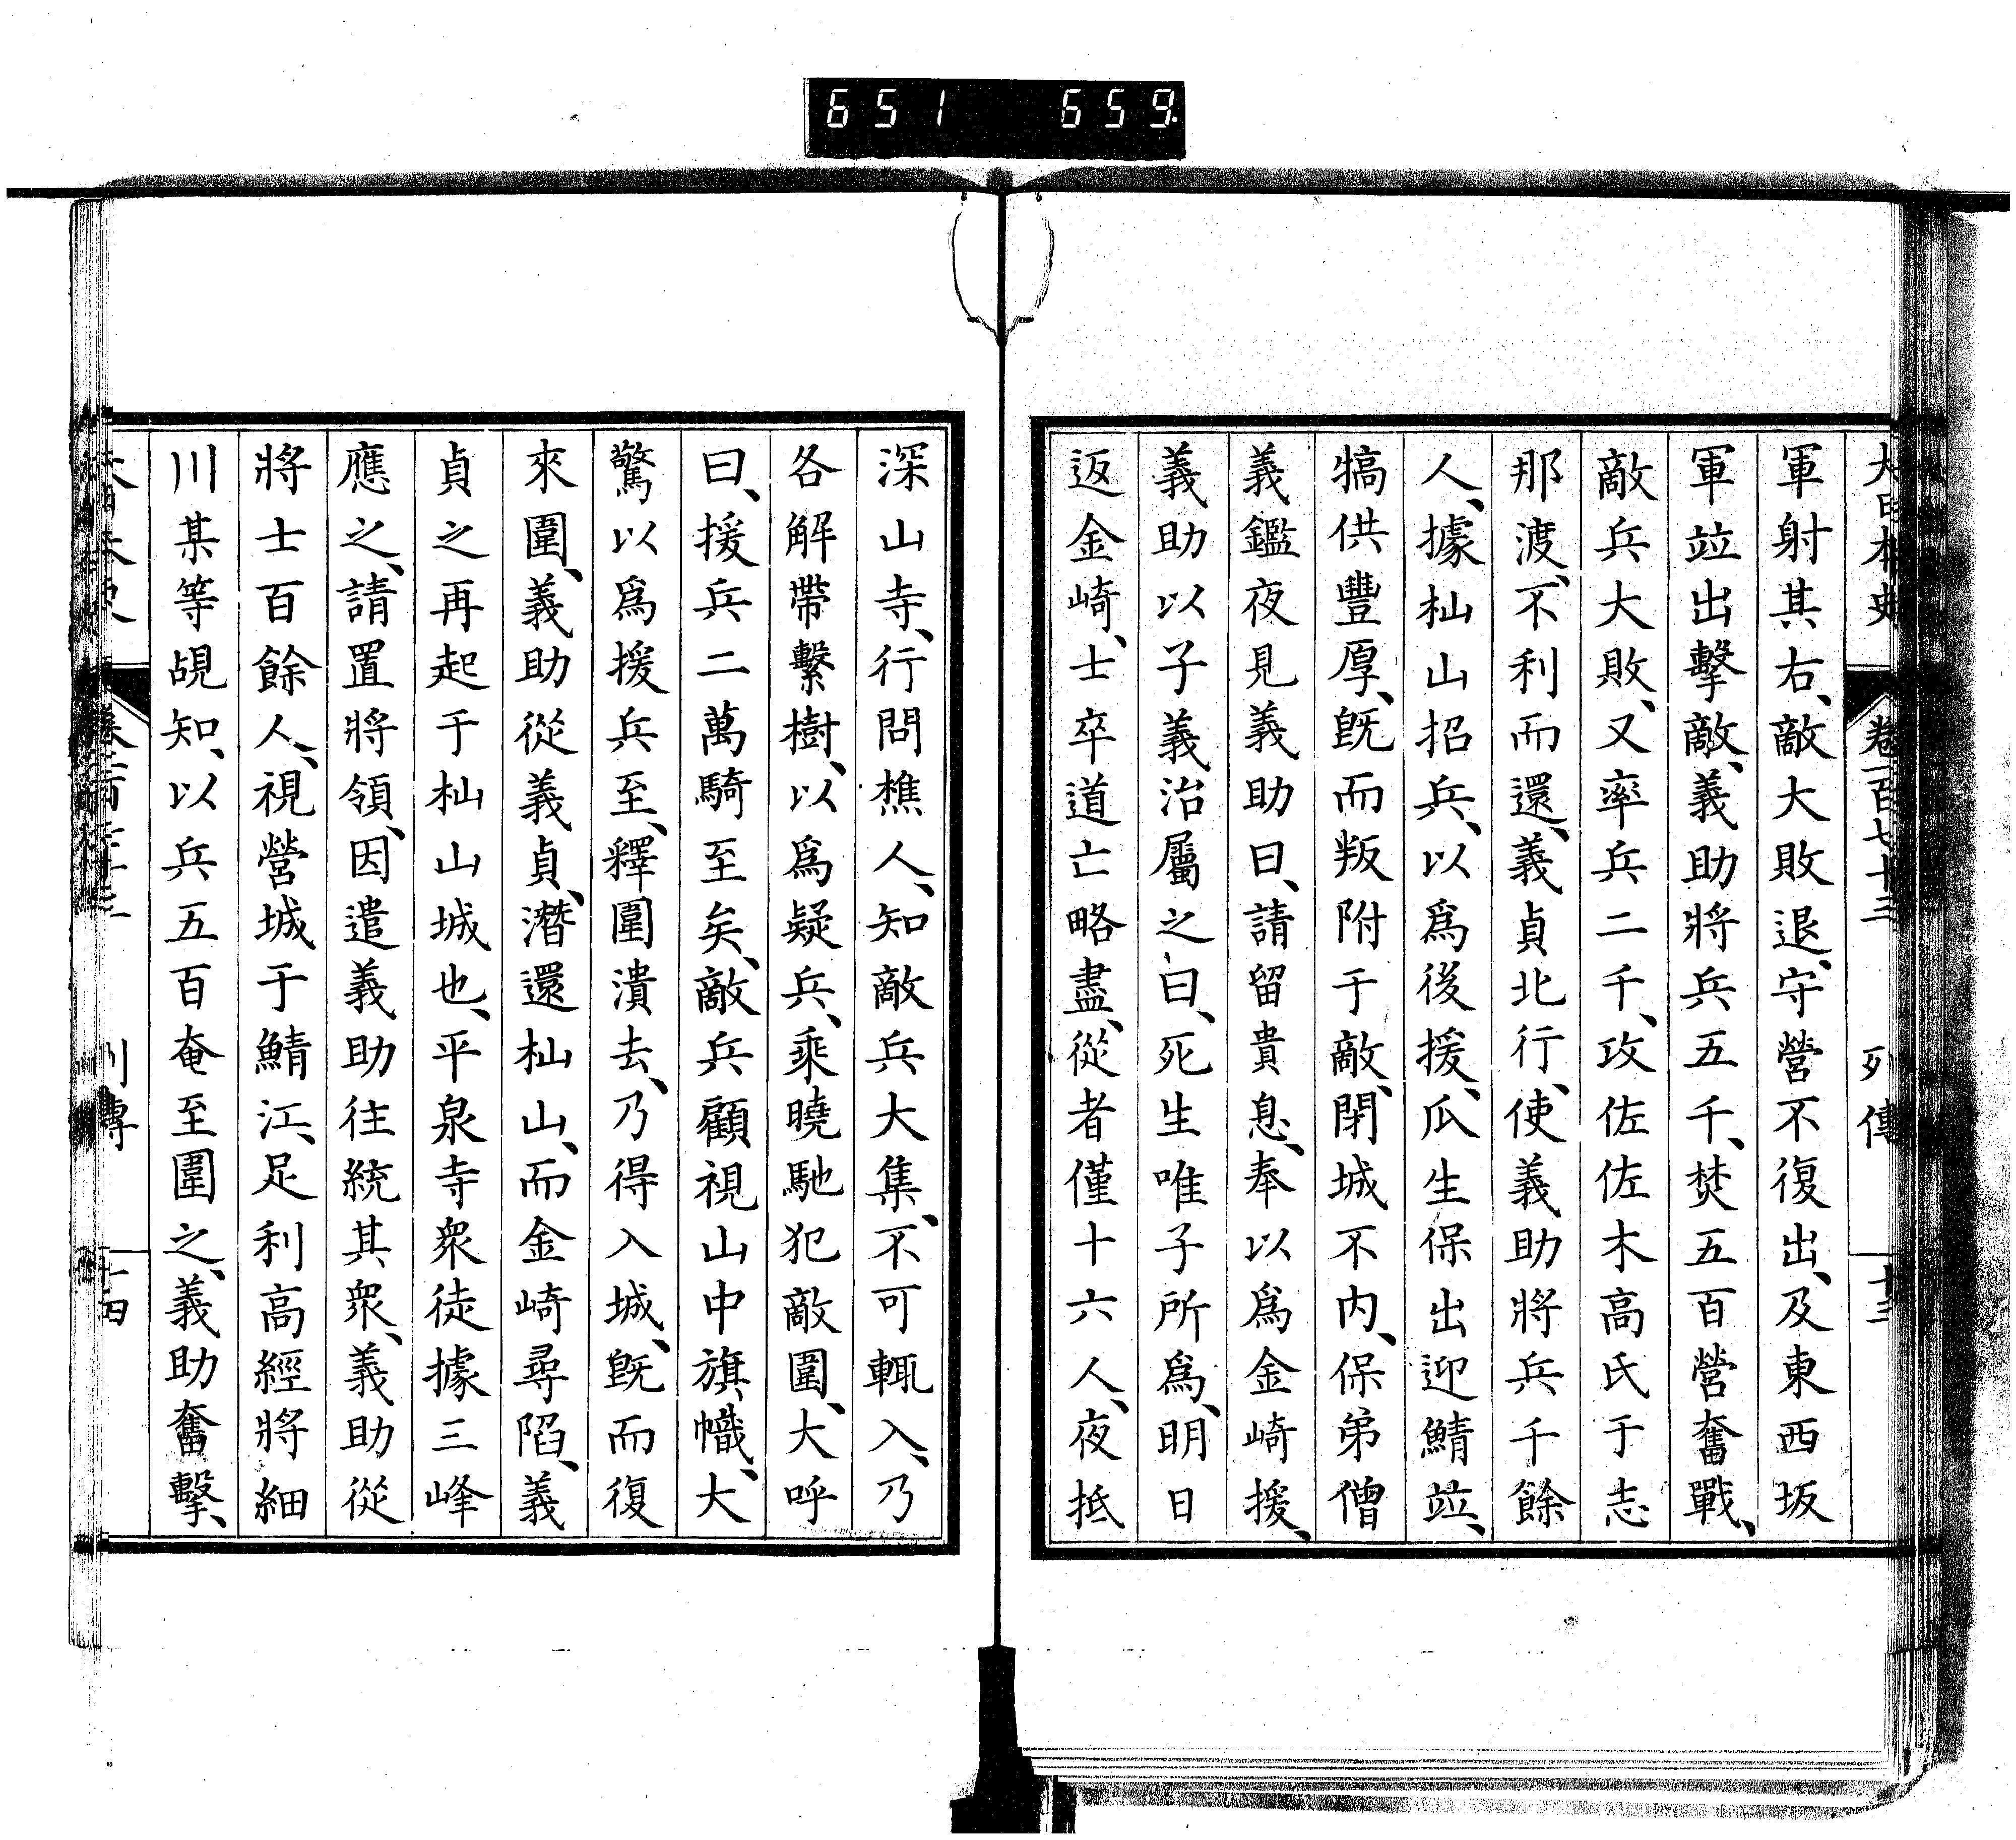 651 659.
大日本史 卷一百七十三 列傳 十三
軍射其右、敵大敗退、守營不復出、及東西坂
軍竝出擊敵、義助將兵五千、焚五百營奮戰、
敵兵大敗、又率兵二千、攻佐佐木高氏于志
那渡、不利而還、義貞北行、使義助將兵千餘
人、據杣山招兵、以爲後援、瓜生保出迎鯖竝、
犒供豐厚、旣而叛附于敵、閉城不內、保弟僧
義鑑夜見義助曰、請留貴息、奉以爲金崎援、
義助以子義治屬之曰、死生唯子所爲、明日
返金崎、士卒道亡略盡、從者僅十六人、夜抵
深山寺、行問樵人、知敵兵大集、不可輒入、乃
各解帶繫樹、以爲疑兵、乘曉馳犯敵圍、大呼
曰、援兵二萬騎至矣、敵兵顧視山中旗幟、大
驚以爲援兵至、釋圍潰去、乃得入城、旣而復
來圍、義助從義貞、潛還杣山、而金崎尋陷、義
貞之再起于杣山城也、平泉寺衆徒據三峰
應之、請置將領、因遣義助往統其衆、義助從
將士百餘人、視營城于鯖江、足利高經將細
川某等覘知、以兵五百奄至圍之、義助奮擊、
列傳